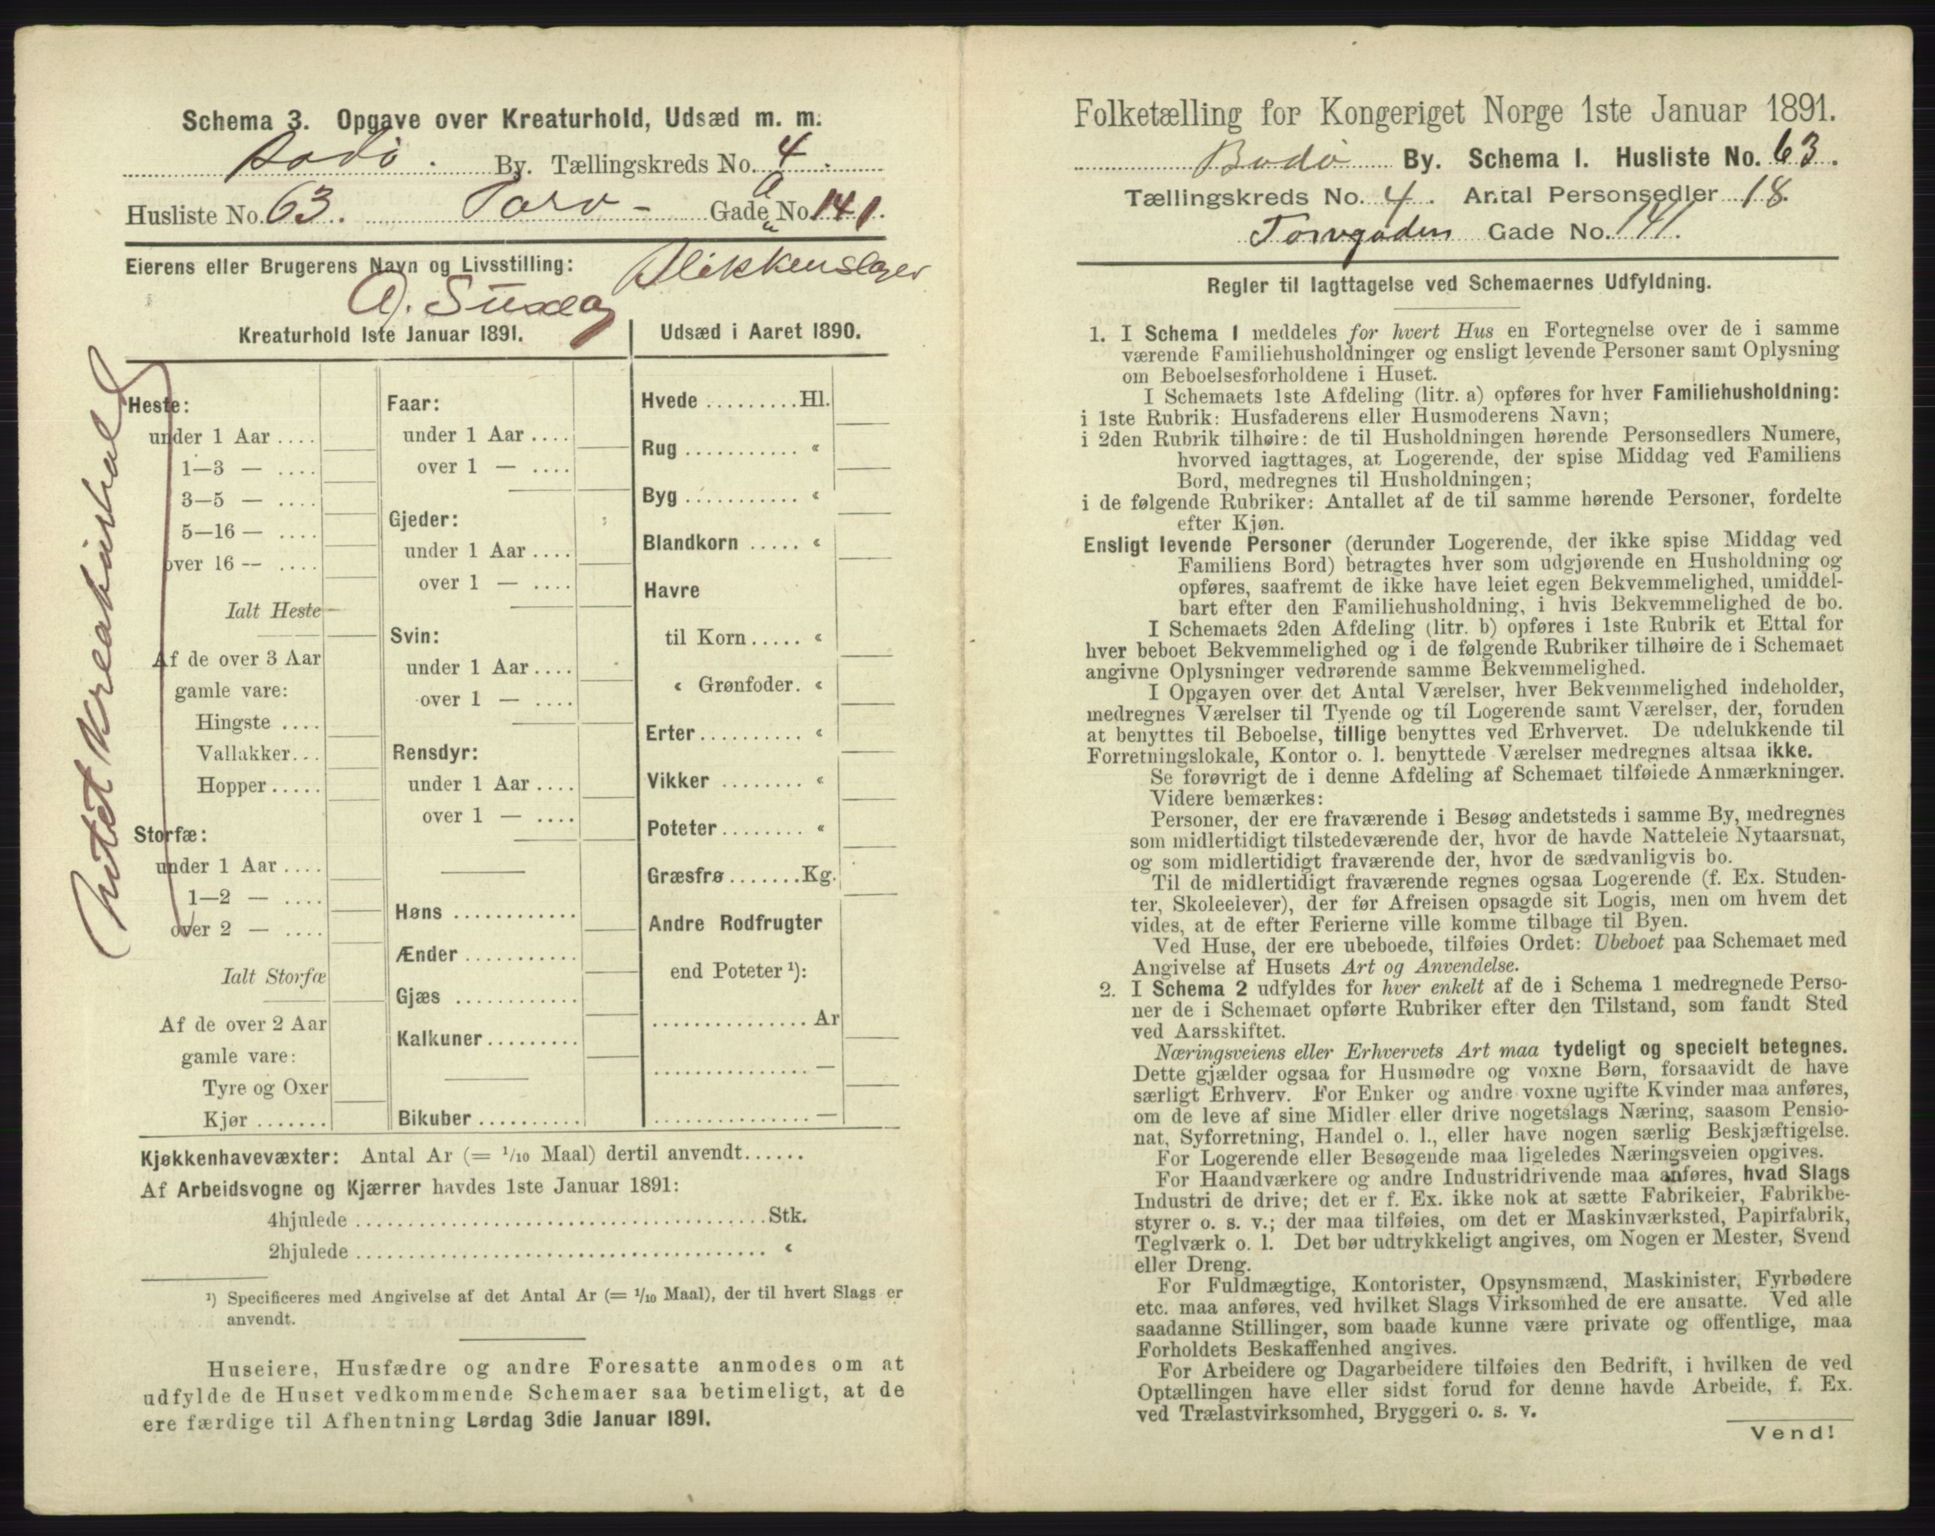 Schema 3. Opgave over Kreaturhold, Udsæd m. m.
Bodø. By. Tællingskreds No. 4.
Husliste No. 63. Torv- Gade No. 141.
Eierens eller Brugerens Navn og Livsstilling: Blikkenslager
Kreaturhold 1ste Januar 1891.
Udsæd i Aaret 1890.
Intet Kreaturhold
Heste:
under 1 Aar ....
1—3 — ....
3—5 — ....
5—16 — ....
over 16 — ....
Ialt Heste
Af de over 3 Aar
gamle vare:
Hingste ....
Vallakker...
Hopper.....
Storfæ:
under 1 Aar ....
1—2 — ....
over 2 — ....
Ialt Storfæ
Af de over 2 Aar
gamle vare:
Tyre og Oxer
Kjør .......
Faar:
under 1 Aar ....
over 1 — ....
Gjeder:
under 1 Aar ....
over 1 — ....
Svin:
under 1 Aar ....
over 1 — ....
Rensdyr:
under 1 Aar ....
over 1 — ....
Høns ............
Ænder ...........
Gjæs ............
Kalkuner.........
Bikuber ..........
Hvede .........Hl.
Rug ........... «
Byg ........... «
Blandkorn ..... «
Havre
til Korn ..... «
« Grønfoder. «
Erter.......... «
Vikker ........ «
Poteter ........ «
Græsfrø.......Kg.
Andre Rodfrugter
end Poteter ¹):
...............Ar
...............—
...............—
Kjøkkenhavevæxter: Antal Ar (= 1/10 Maal) dertil anvendt......
Af Arbeidsvogne og Kjærrer havdes 1ste Januar 1891:
4hjulede ......................................Stk.
2hjulede ...................................... «
¹) Specificeres med Angivelse af det Antal Ar (= 1/10 Maal), der til hvert Slags er
anvendt.
Huseiere, Husfædre og andre Foresatte anmodes om at
udfylde de Huset vedkommende Schemaer saa betimeligt, at de
ere færdige til Afhentning Lørdag 3die Januar 1891.
Folketælling for Kongeriget Norge 1ste Januar 1891.
Bodø By. Schema 1. Husliste No. 63.
Tællingskreds No. 4. Antal Personsedler 18.
Torvgaden Gade No. 141.
Regler til Iagttagelse ved Schemaernes Udfyldning.
1. I Schema 1 meddeles for hvert Hus en Fortegnelse over de i samme
værende Familiehusholdninger og ensligt levende Personer samt Oplysning
om Beboelsesforholdene i Huset.
I Schemaets 1ste Afdeling (litr. a) opføres for hver Familiehusholdning:
i 1ste Rubrik: Husfaderens eller Husmoderens Navn;
i 2den Rubrik tilhøire: de til Husholdningen hørende Personsedlers Numere,
hvorved iagttages, at Logerende, der spise Middag ved Familiens
Bord, medregnes til Husholdningen;
i de følgende Rubriker: Antallet af de til samme hørende Personer, fordelte
efter Kjøn.
Ensligt levende Personer (derunder Logerende, der ikke spise Middag ved
Familiens Bord) betragtes hver som udgjørende en Husholdning og
opføres, saafremt de ikke have leiet egen Bekvemmelighed, umiddel-
bart efter den Familiehusholdning, i hvis Bekvemmelighed de bo.
I Schemaets 2den Afdeling (litr. b) opføres i 1ste Rubrik et Ettal for
hver beboet Bekvemmelighed og i de følgende Rubriker tilhøire de i Schemaet
angivne Oplysninger vedrørende samme Bekvemmelighed.
I Opgaven over det Antal Værelser, hver Bekvemmelighed indeholder,
medregnes Værelser til Tyende og til Logerende samt Værelser, der, foruden
at benyttes til Beboelse, tillige benyttes ved Erhvervet. De udelukkende til
Forretningslokale, Kontor o. l. benyttede Værelser medregnes altsaa ikke.
Se forøvrigt de i denne Afdeling af Schemaet tilføiede Anmærkninger.
Videre bemærkes:
Personer, der ere fraværende i Besøg andetsteds i samme By, medregnes
som midlertidigt tilstedeværende der, hvor de havde Natteleie Nytaarsnat,
og som midlertidigt fraværende der, hvor de sædvanligvis bo.
Til de midlertidigt fraværende regnes ogsaa Logerende (f. Ex. Studen-
ter, Skoleelever), der før Afreisen opsagde sit Logis, men om hvem det
vides, at de efter Ferierne ville komme tilbage til Byen.
Ved Huse, der ere ubeboede, tilføies Ordet: Ubeboet paa Schemaet med
Angivelse af Husets Art og Anvendelse.
2. I Schema 2 udfyldes for hver enkelt af de i Schema 1 medregnede Perso-
ner de i Schemaet opførte Rubriker efter den Tilstand, som fandt Sted
ved Aarsskiftet.
Næringsveiens eller Erhvervets Art maa tydeligt og specielt betegnes.
Dette gjælder ogsaa for Husmødre og voxne Børn, forsaavidt de have
særligt Erhverv. For Enker og andre voxne ugifte Kvinder maa anføres,
om de leve af sine Midler eller drive nogetslags Næring, saasom Pensio-
nat, Syforretning, Handel o. l., eller have nogen særlig Beskjæftigelse.
For Logerende eller Besøgende maa ligeledes Næringsveien opgives.
For Haandværkere og andre Industridrivende maa anføres, hvad Slags
Industri de drive; det er f. Ex. ikke nok at sætte Fabrikeier, Fabrikbe-
styrer o. s. v.; der maa tilføies, om det er Maskinværksted, Papirfabrik,
Teglværk o. l. Det bør udtrykkeligt angives, om Nogen er Mester, Svend
eller Dreng.
For Fuldmægtige, Kontorister, Opsynsmænd, Maskinister, Fyrbødere
etc. maa anføres, ved hvilket Slags Virksomhed de ere ansatte. Ved alle
saadanne Stillinger, som baade kunne være private og offentlige, maa
Forholdets Beskaffenhed angives.
For Arbeidere og Dagarbeidere tilføies den Bedrift, i hvilken de ved
Optællingen have eller sidst forud for denne havde Arbeide, f. Ex.
ved Trælastvirksomhed, Bryggeri o. s. v.
Vend!